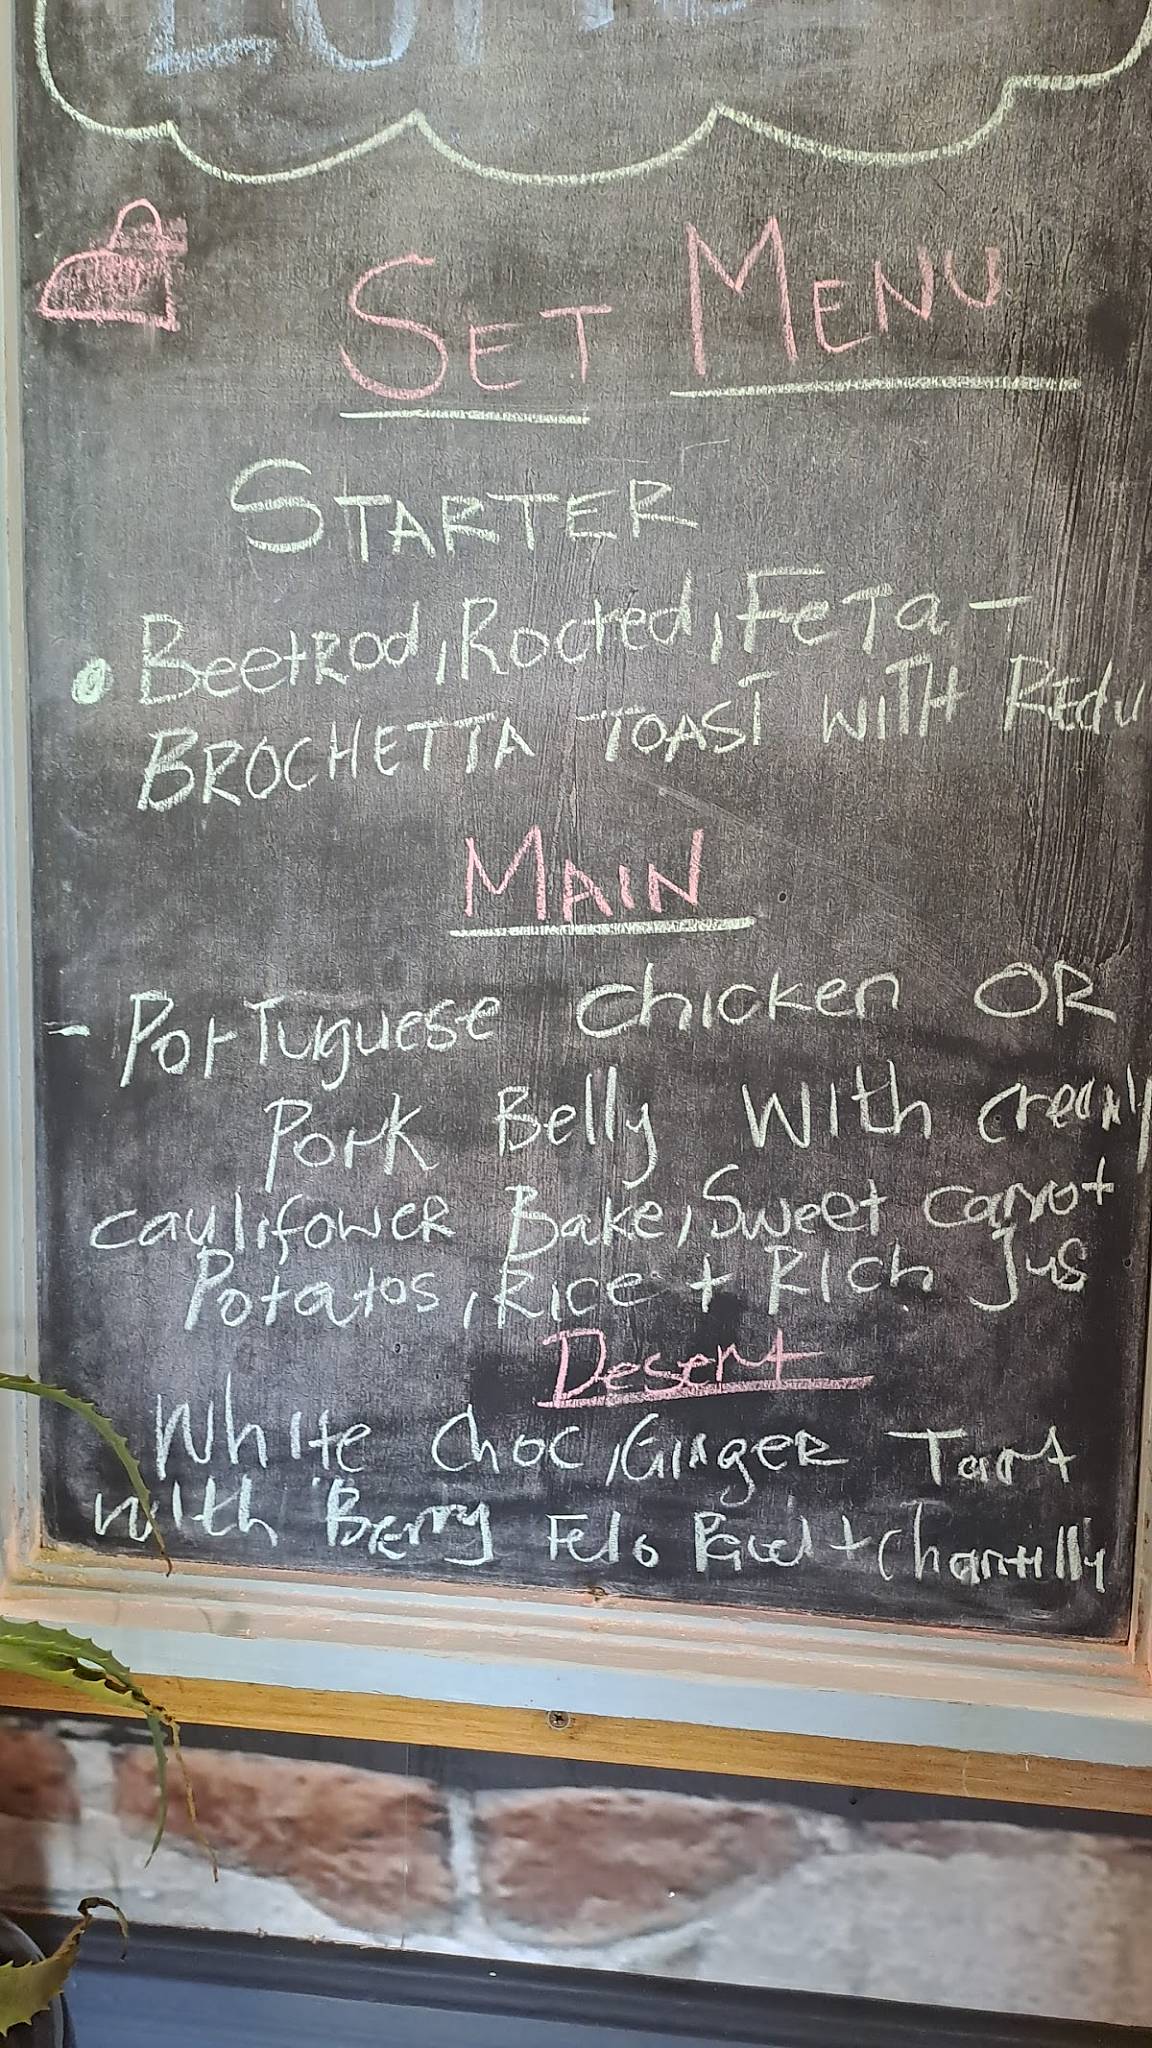 SET MENU
STARTER
BeetRod, Rocted, FeTa -
BROCHETTA TOAST WITH
MAIN
- PorTuguese chicken OR
Pork Belly With creamy
caulifower Bake, Sweet carrot
Potatos, Rice + Rich Jus
Desert
White Choc, Ginger Tart
with Berry + Chantilly